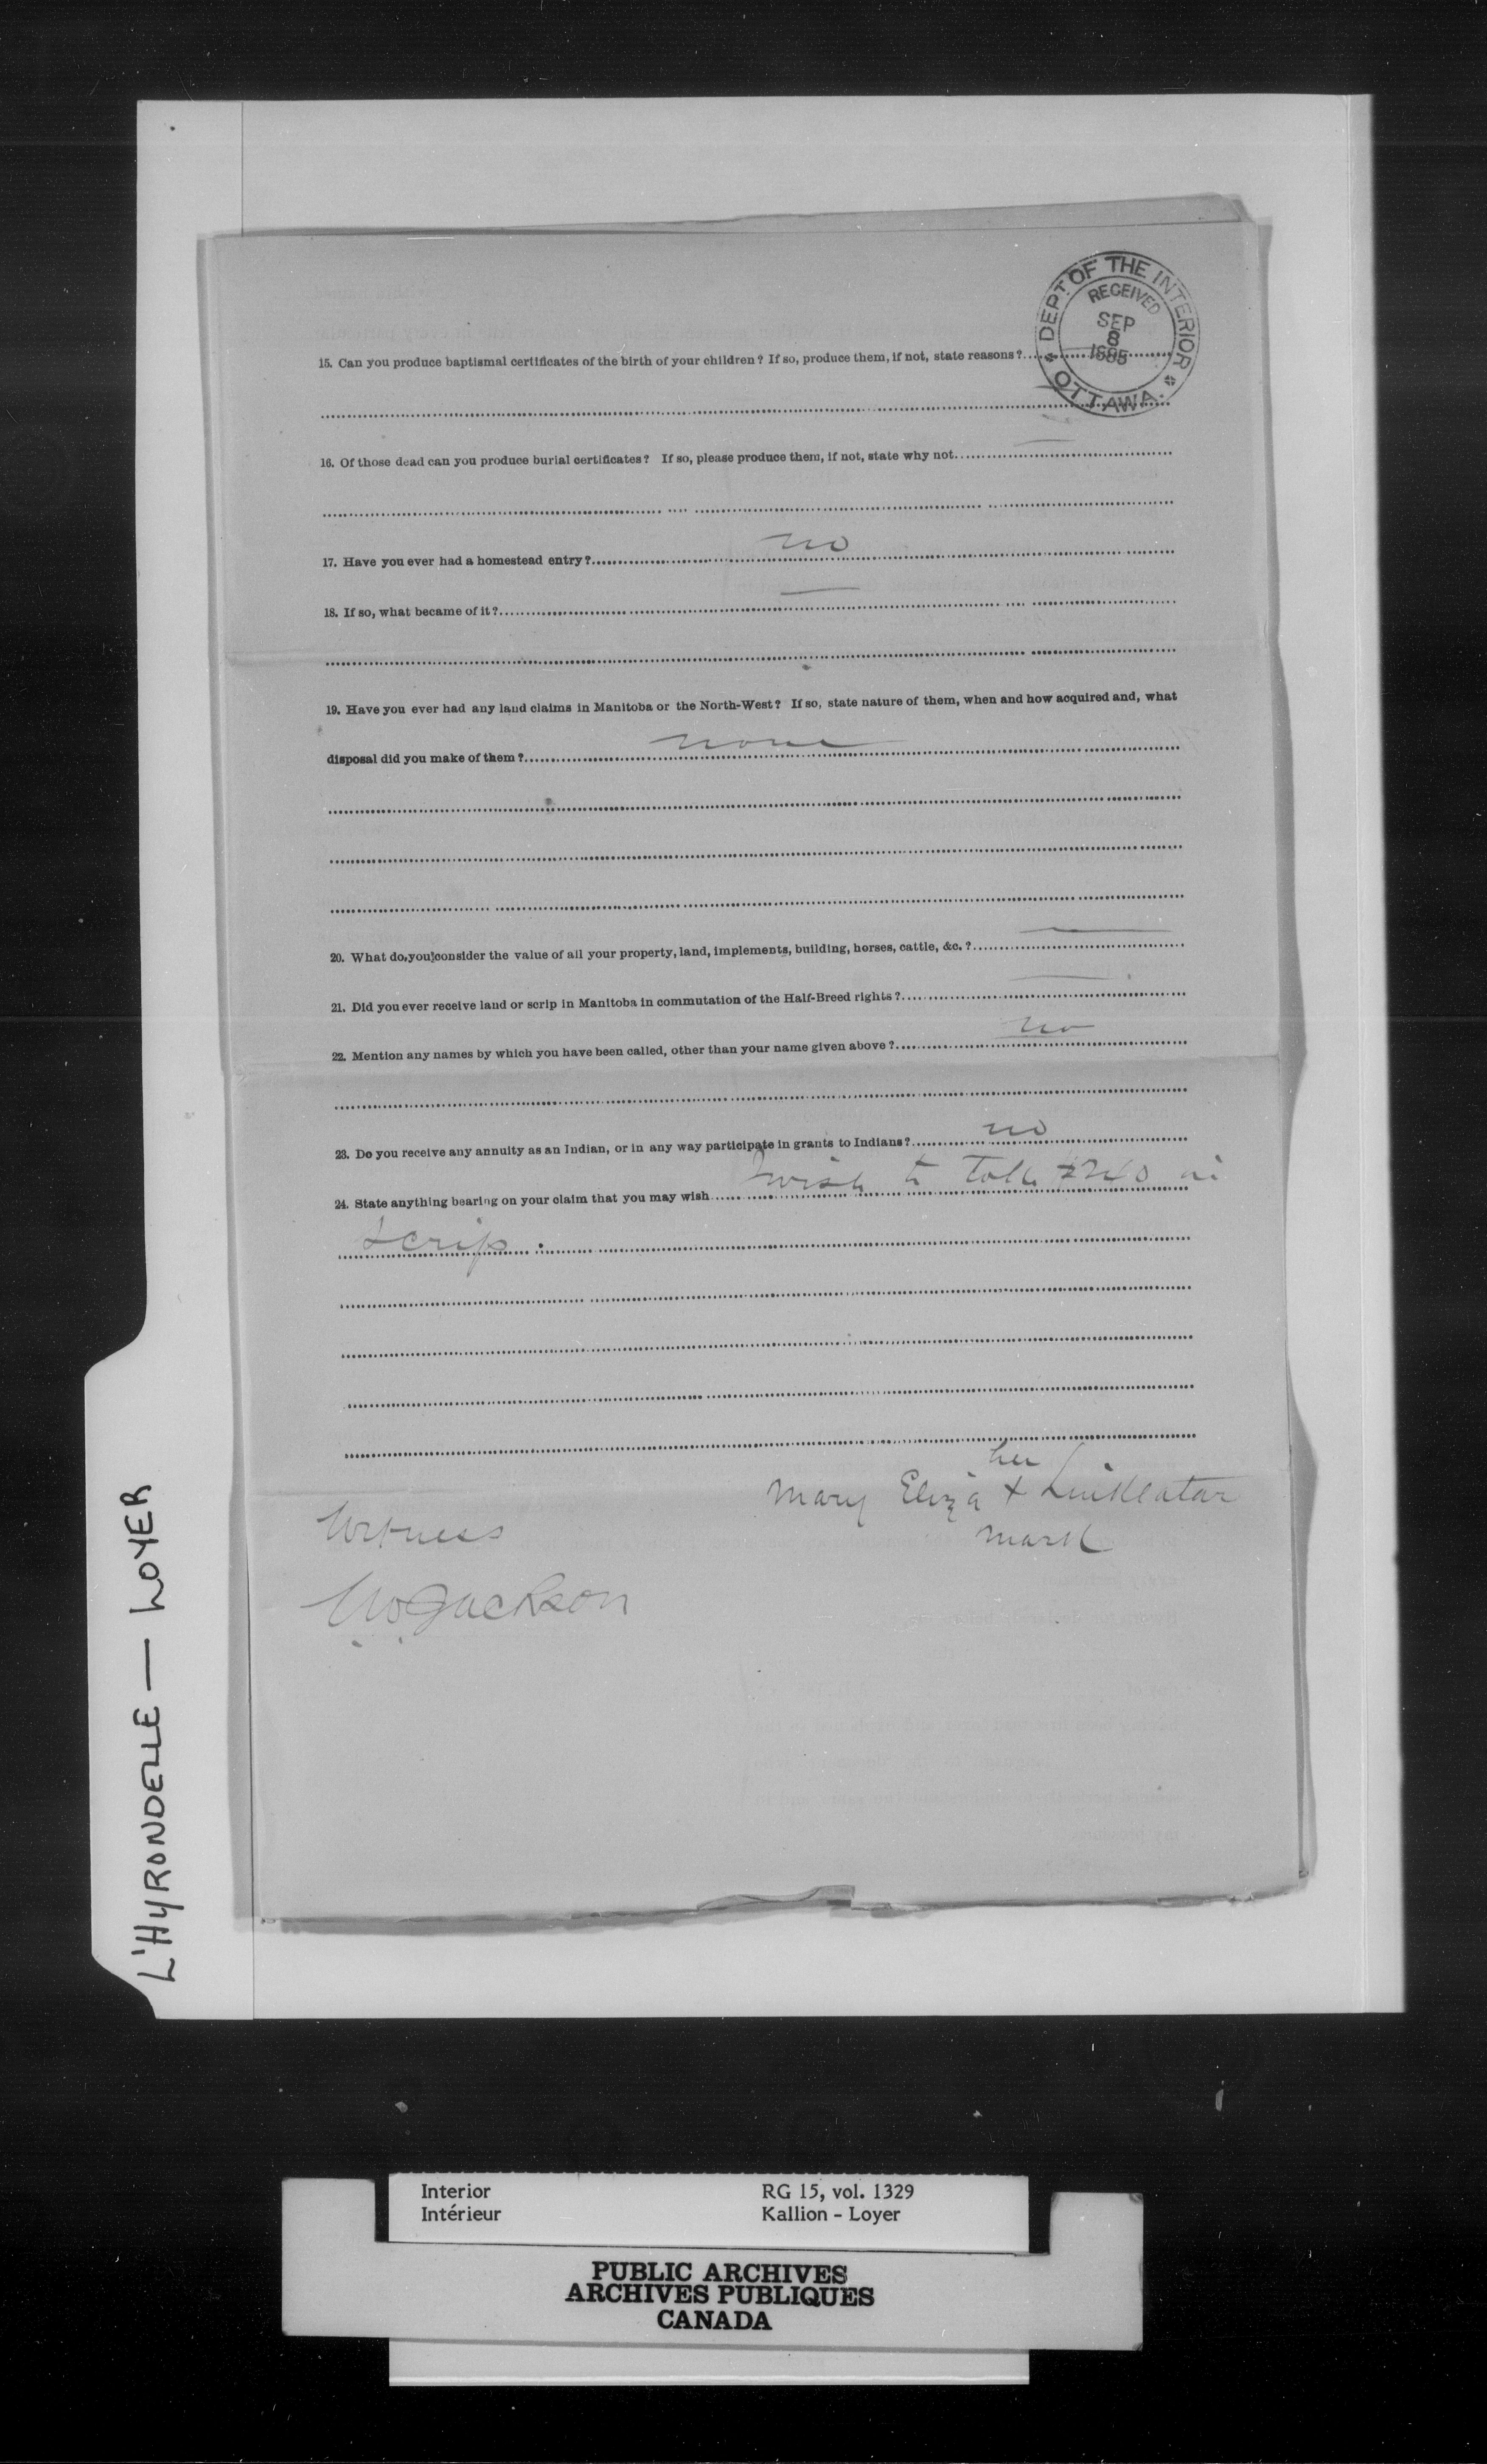 DEPT. OF THE INTERIOR
RECEIVED
SEP
8
1885
OTTAWA
15. Can you produce baptismal certificates of the birth of your children? If so, produce them, if not, state reasons?
16. Of those dead can you produce burial certificates? If so, please produce them, if not, state why not
17. Have you ever had a homestead entry? no
18. If so, what became of it?
19. Have you ever had any land claims in Manitoba or the North-West? If so, state nature of them, when and how acquired and, what
disposal did you make of them? none
20. What do you consider the value of all your property, land, implements, building, horses, cattle, &c.?
21. Did you ever receive land or scrip in Manitoba in commutation of the Half-Breed rights?
22. Mention any names by which you have been called, other than your name given above? no
23. Do you receive any annuity as an Indian, or in any way participate in grants to Indians? no
24. State anything bearing on your claim that you may wish I wish to take $240 in
scrip.
her
Mary Eliza X Linklatar
mark
Witness
Jackson
L'HYRONDELLE — LOYER
Interior RG 15, vol. 1329
Intérieur Kallion - Loyer
PUBLIC ARCHIVES
ARCHIVES PUBLIQUES
CANADA